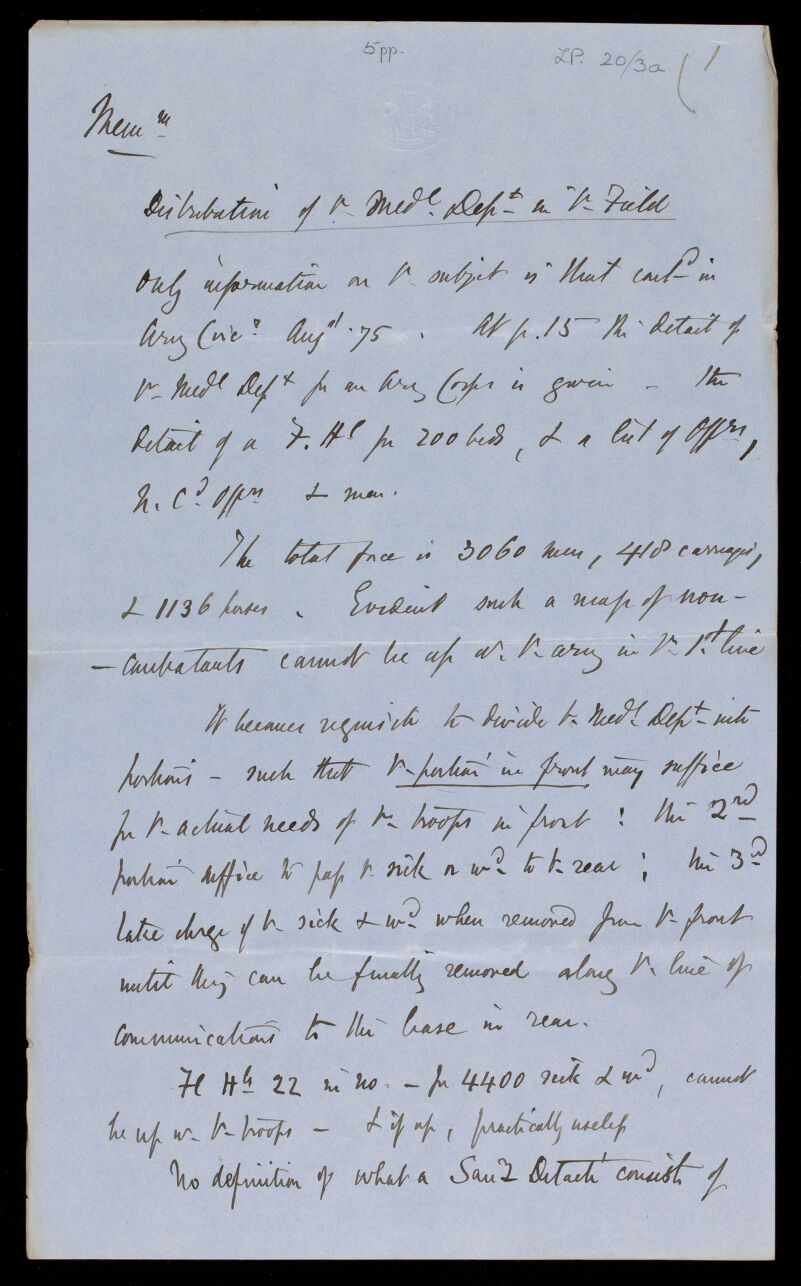 5pp.
LP. 20/3a
1
Mem m
Distribution of ye Medl. Dept. in ye Field
Only information on ye subject is that contd in
Army Circs Augt '75. At p. 15 the detail of
ye Medl Dept for an Army Corps is given - The
detail of a F. Hl for 200 beds, & a list of Offrs,
N. Cd. Offrs & men.
The total force is 3060 men, 418 carriages,
& 1136 horses. Evident such a mass of non-
-combatants cannot be up w. ye army in ye 1st line
It becomes requisite to divide ye Medl Dept into
portions - such that ye portion in front may suffice
for ye actual needs of ye troops in front; the 2nd
portion suffice to pass ye sick or wd to ye rear; the 3rd
take chge of ye sick & wd when removed from ye front
until they can be finally removed along ye line of
communications to the base in rear.
Fl Hls 22 in no. - for 4400 sick & wd, cannot
be up w. ye troops - & if up, practically useless
No definition of what a San: Detacht consists of